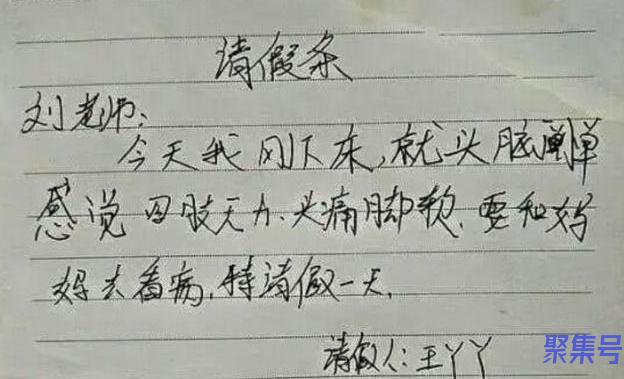 请假条
刘老师:
今天我刚下床,就头脑
感觉四肢无力、头痛脚软,要和妈
妈去看病,特请假一天。
请假人:王丫丫
聚集号